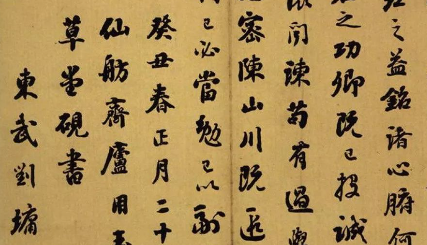 之益銘諸心膂何
之功卿既已投誠
聞諫苟有過與
密陳山川既遥
何已必當勉已以副
癸丑春正月二十
仙舫齋廬用
草堂硯書
東武劉墉